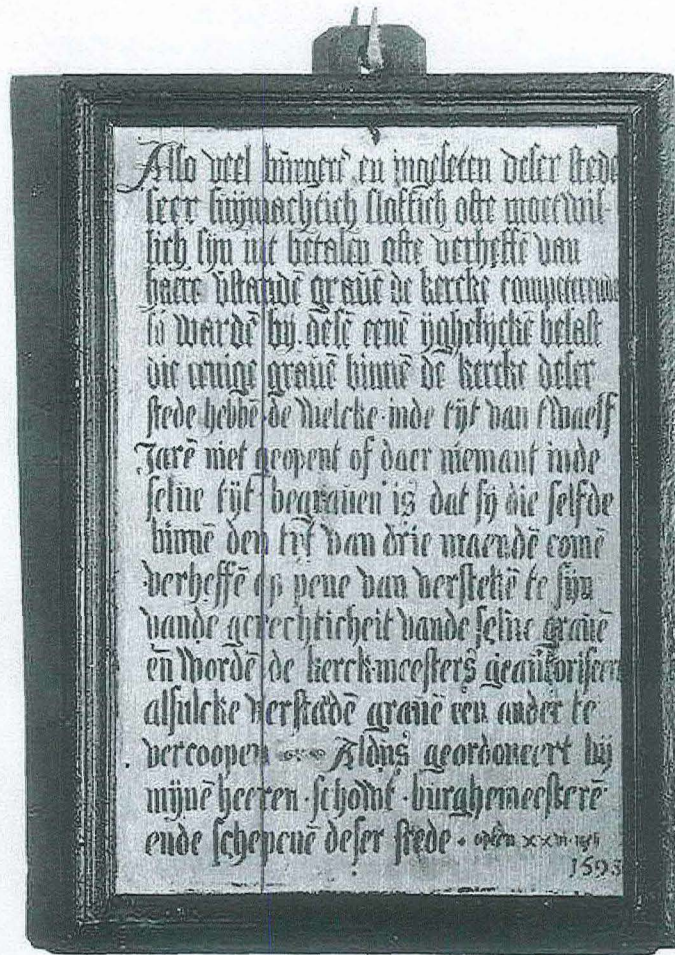 Also veel burgers en ingeseten deser stede
seer suijmachtich sloffich ofte moetwil-
lich sijn int betalen ofte verheffē van
haere vstandē gravē de kercke competerende
so wardē bij desē eenē ijghelijckē belast
die eenige gravē binnē de kercke deser
stede hebbē de welcke inde tijt van twaelf
Jarē niet geopent of daer niemant inde
selve tijt begraven is dat sij die selfde
binnē den tijt van drie maendē comē
verheffē op pene van verstekē te sijn
vande gerechticheit vande selve gravē
en wordē de kerck-meesters geautoriseert
alsulcke verstadē gravē een ander te
vercoopen Aldus geordoneert bij
mijnē heeren · schowt · burghemeesterē
ende schepenē deser stede · opten xxvi
1593